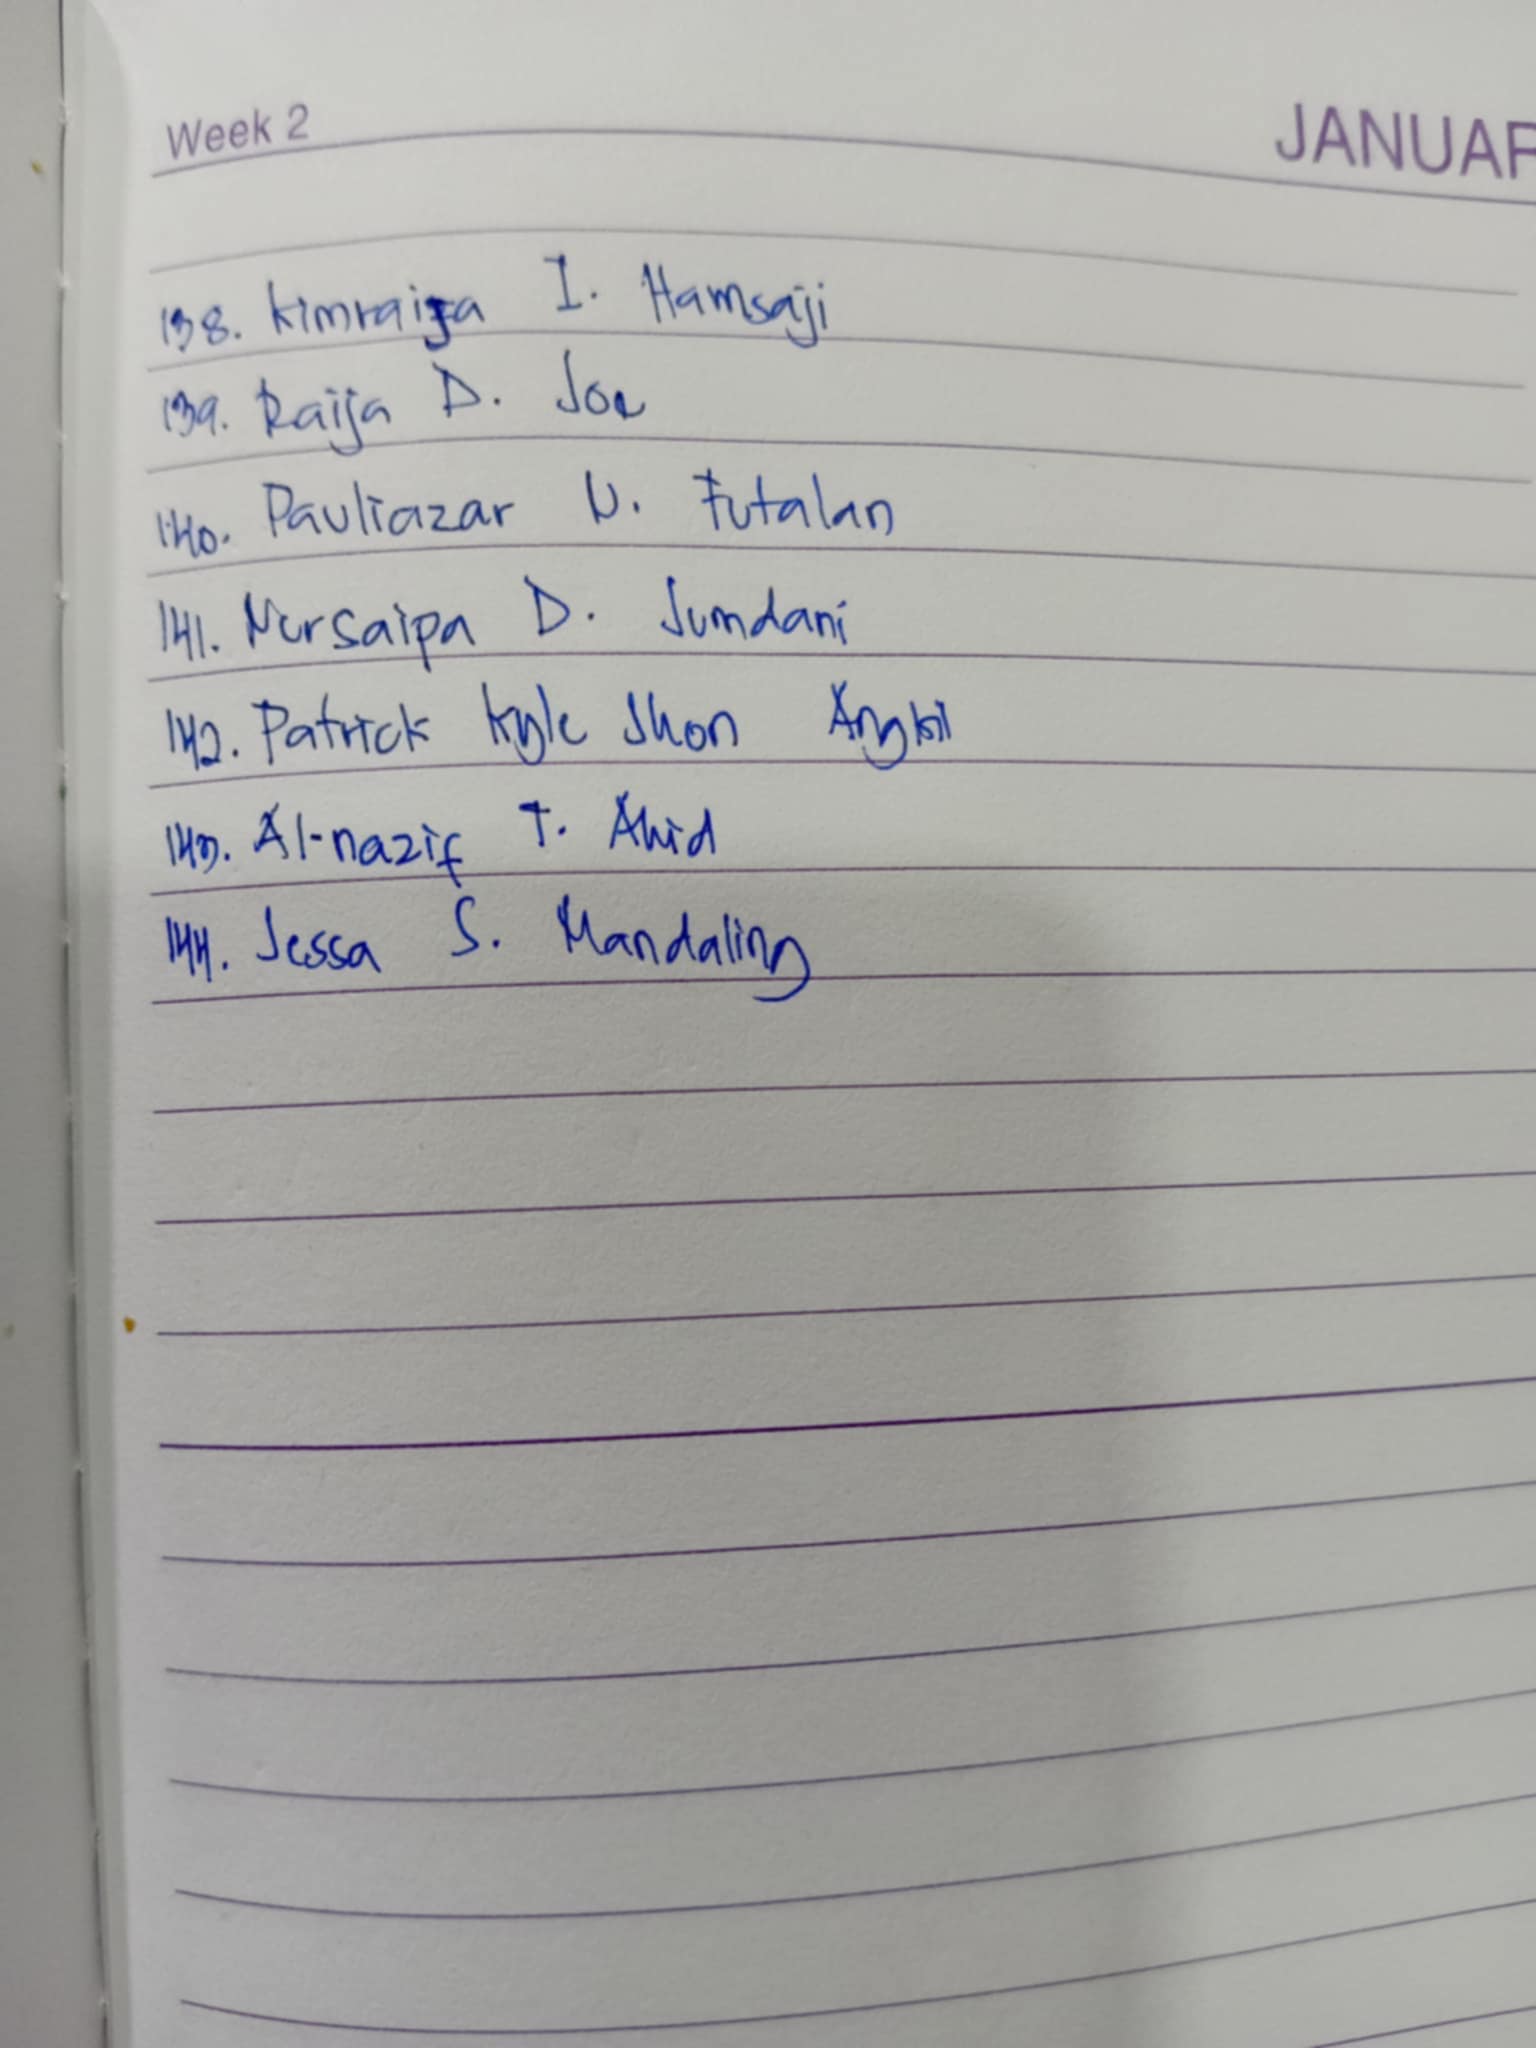 Week 2
JANUAR
138. Kimraija I. Hamsaji
139. Raija D. Joe
140. Pauliazar N. Futalan
141. Nursaipa D. Jumdani
142. Patrick Kyle Jhon Angkil
143. Al-nazif T. Ahid
144. Jessa S. Mandaling